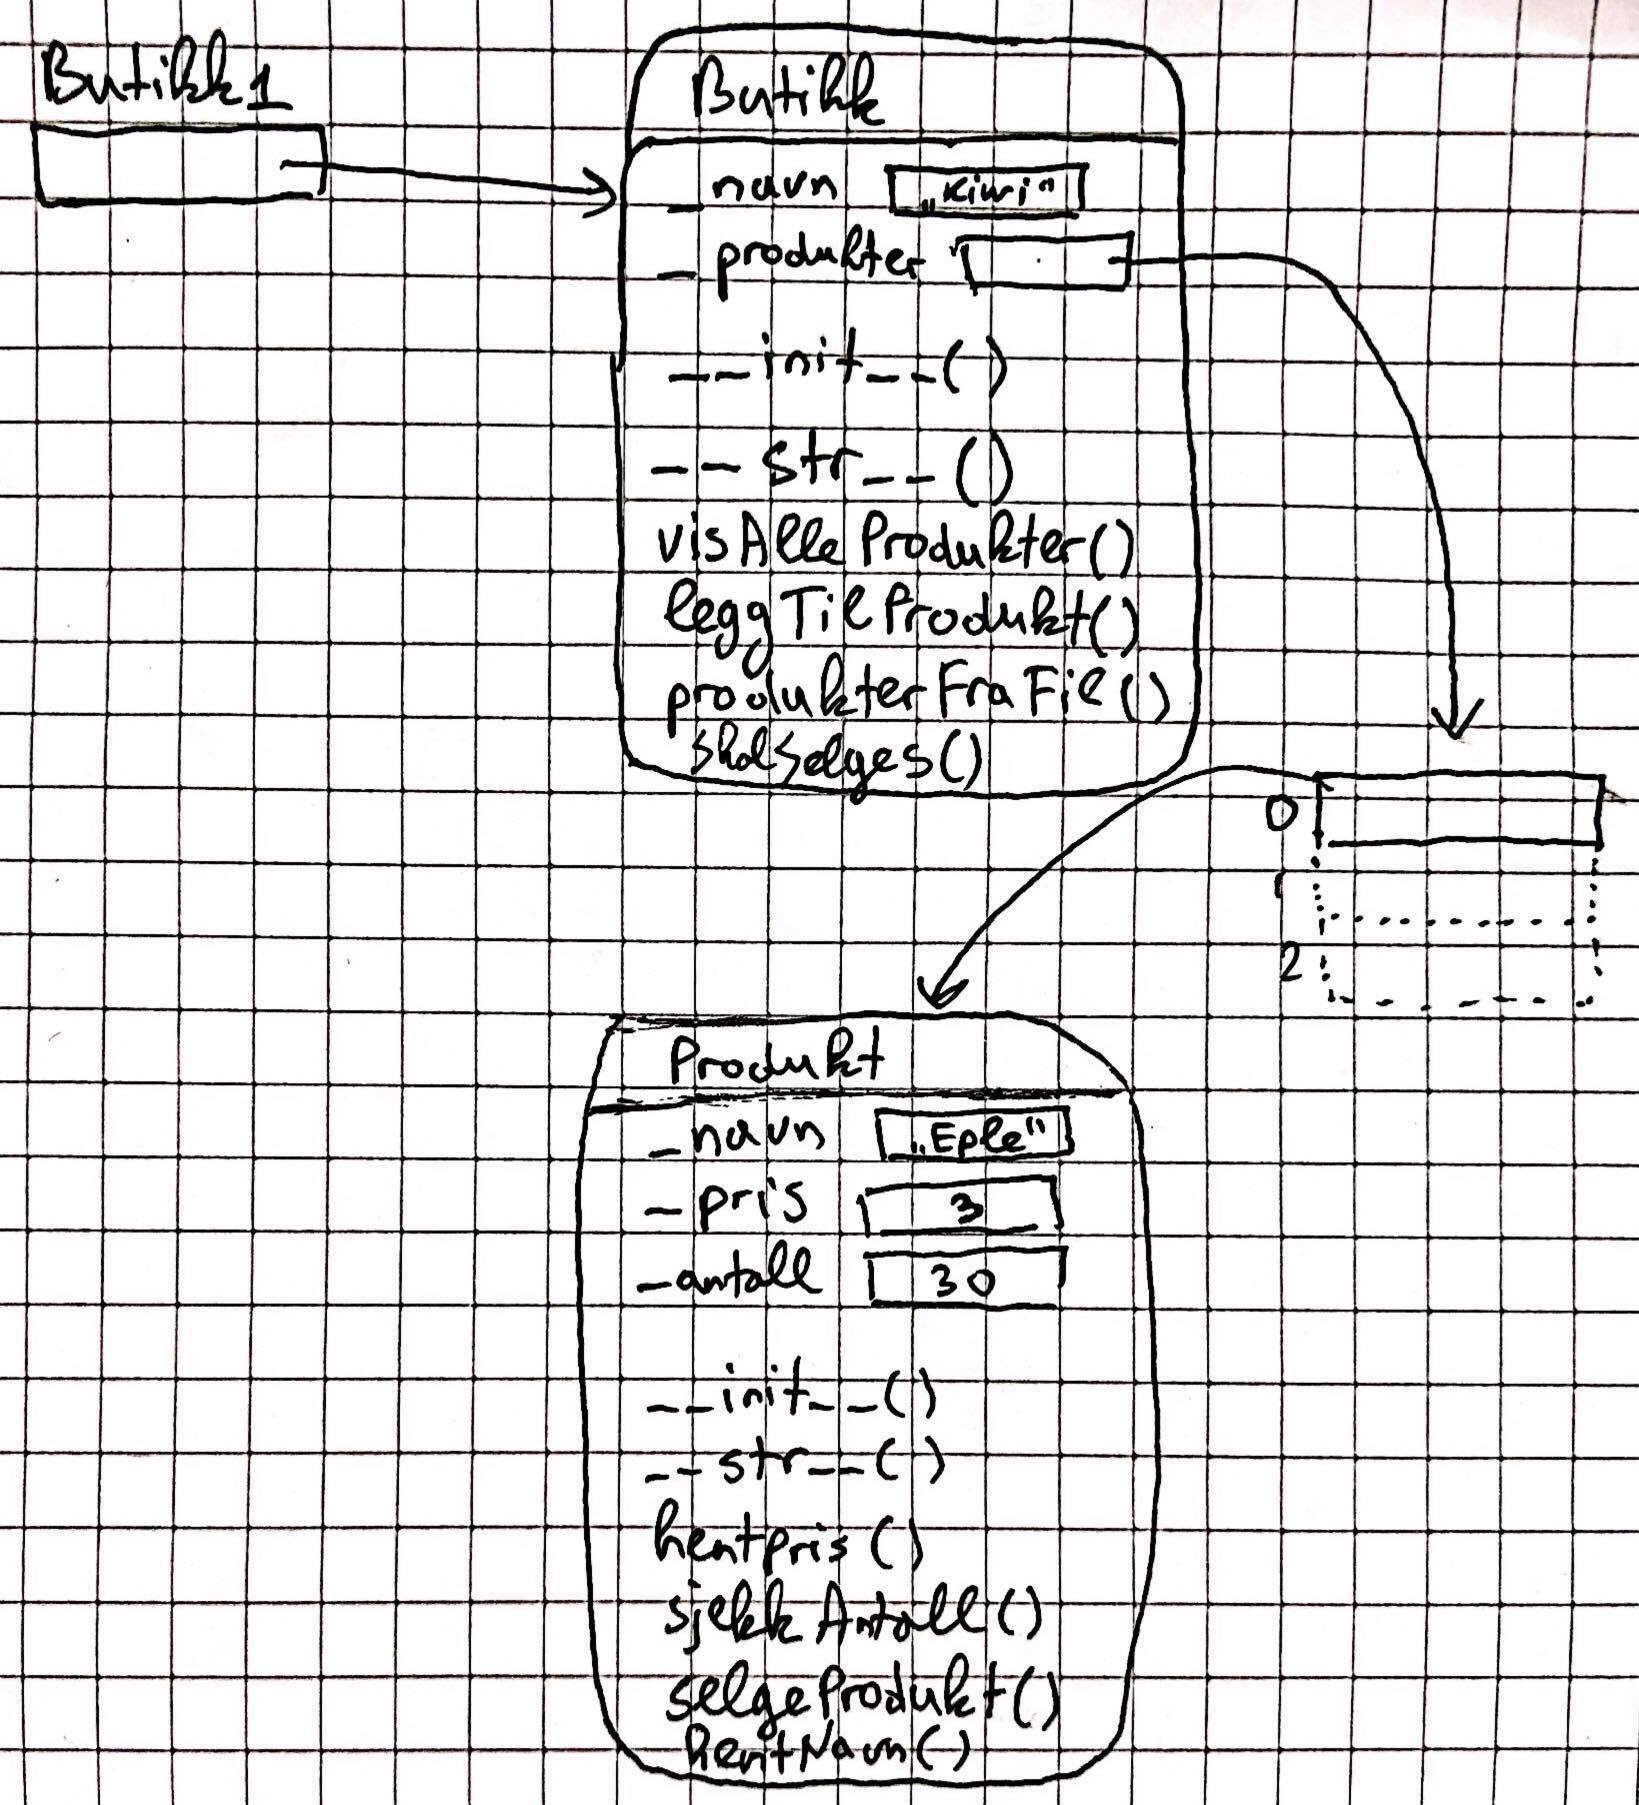 Butikk1
Butikk
_navn „Kiwi"
_produkter
__init__()
__str__()
visAlleProdukter()
leggTilProdukt()
produkterFraFil()
skalSelges()
0
1
2
Produkt
_navn „Eple"
_pris 3
_antall 30
__init__()
__str__()
hentpris()
sjekkAntall()
selgeProdukt()
hentNavn()